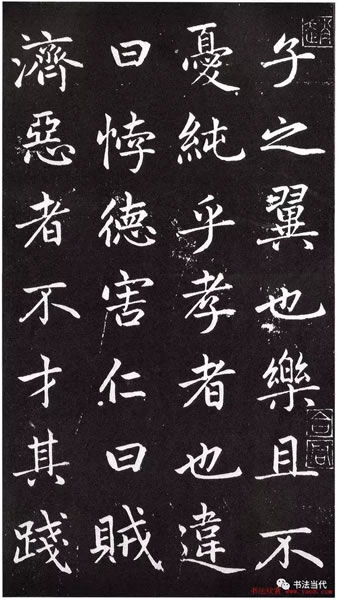 子之翼也樂且不
憂純乎孝者也違
曰悖德害仁曰賊
濟惡者不才其踐
书法当代
书法欣赏